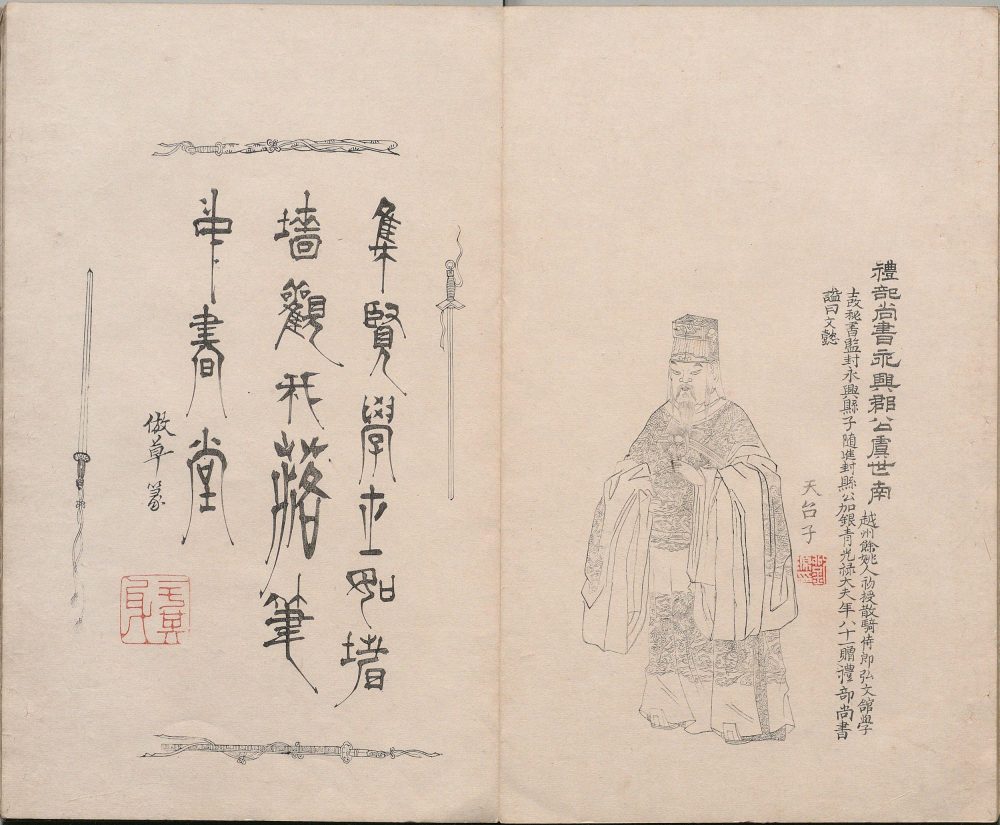 禮部尚書永興郡公虞世南
越州餘姚人初授散騎侍郎弘文館學
士改秘書監封永興縣子隨進封縣公加銀青光祿大夫年八十一贈禮部尚書
謚曰文懿
天台子
集賢學士如堵
墻觀我落筆
中書堂
倣草篆